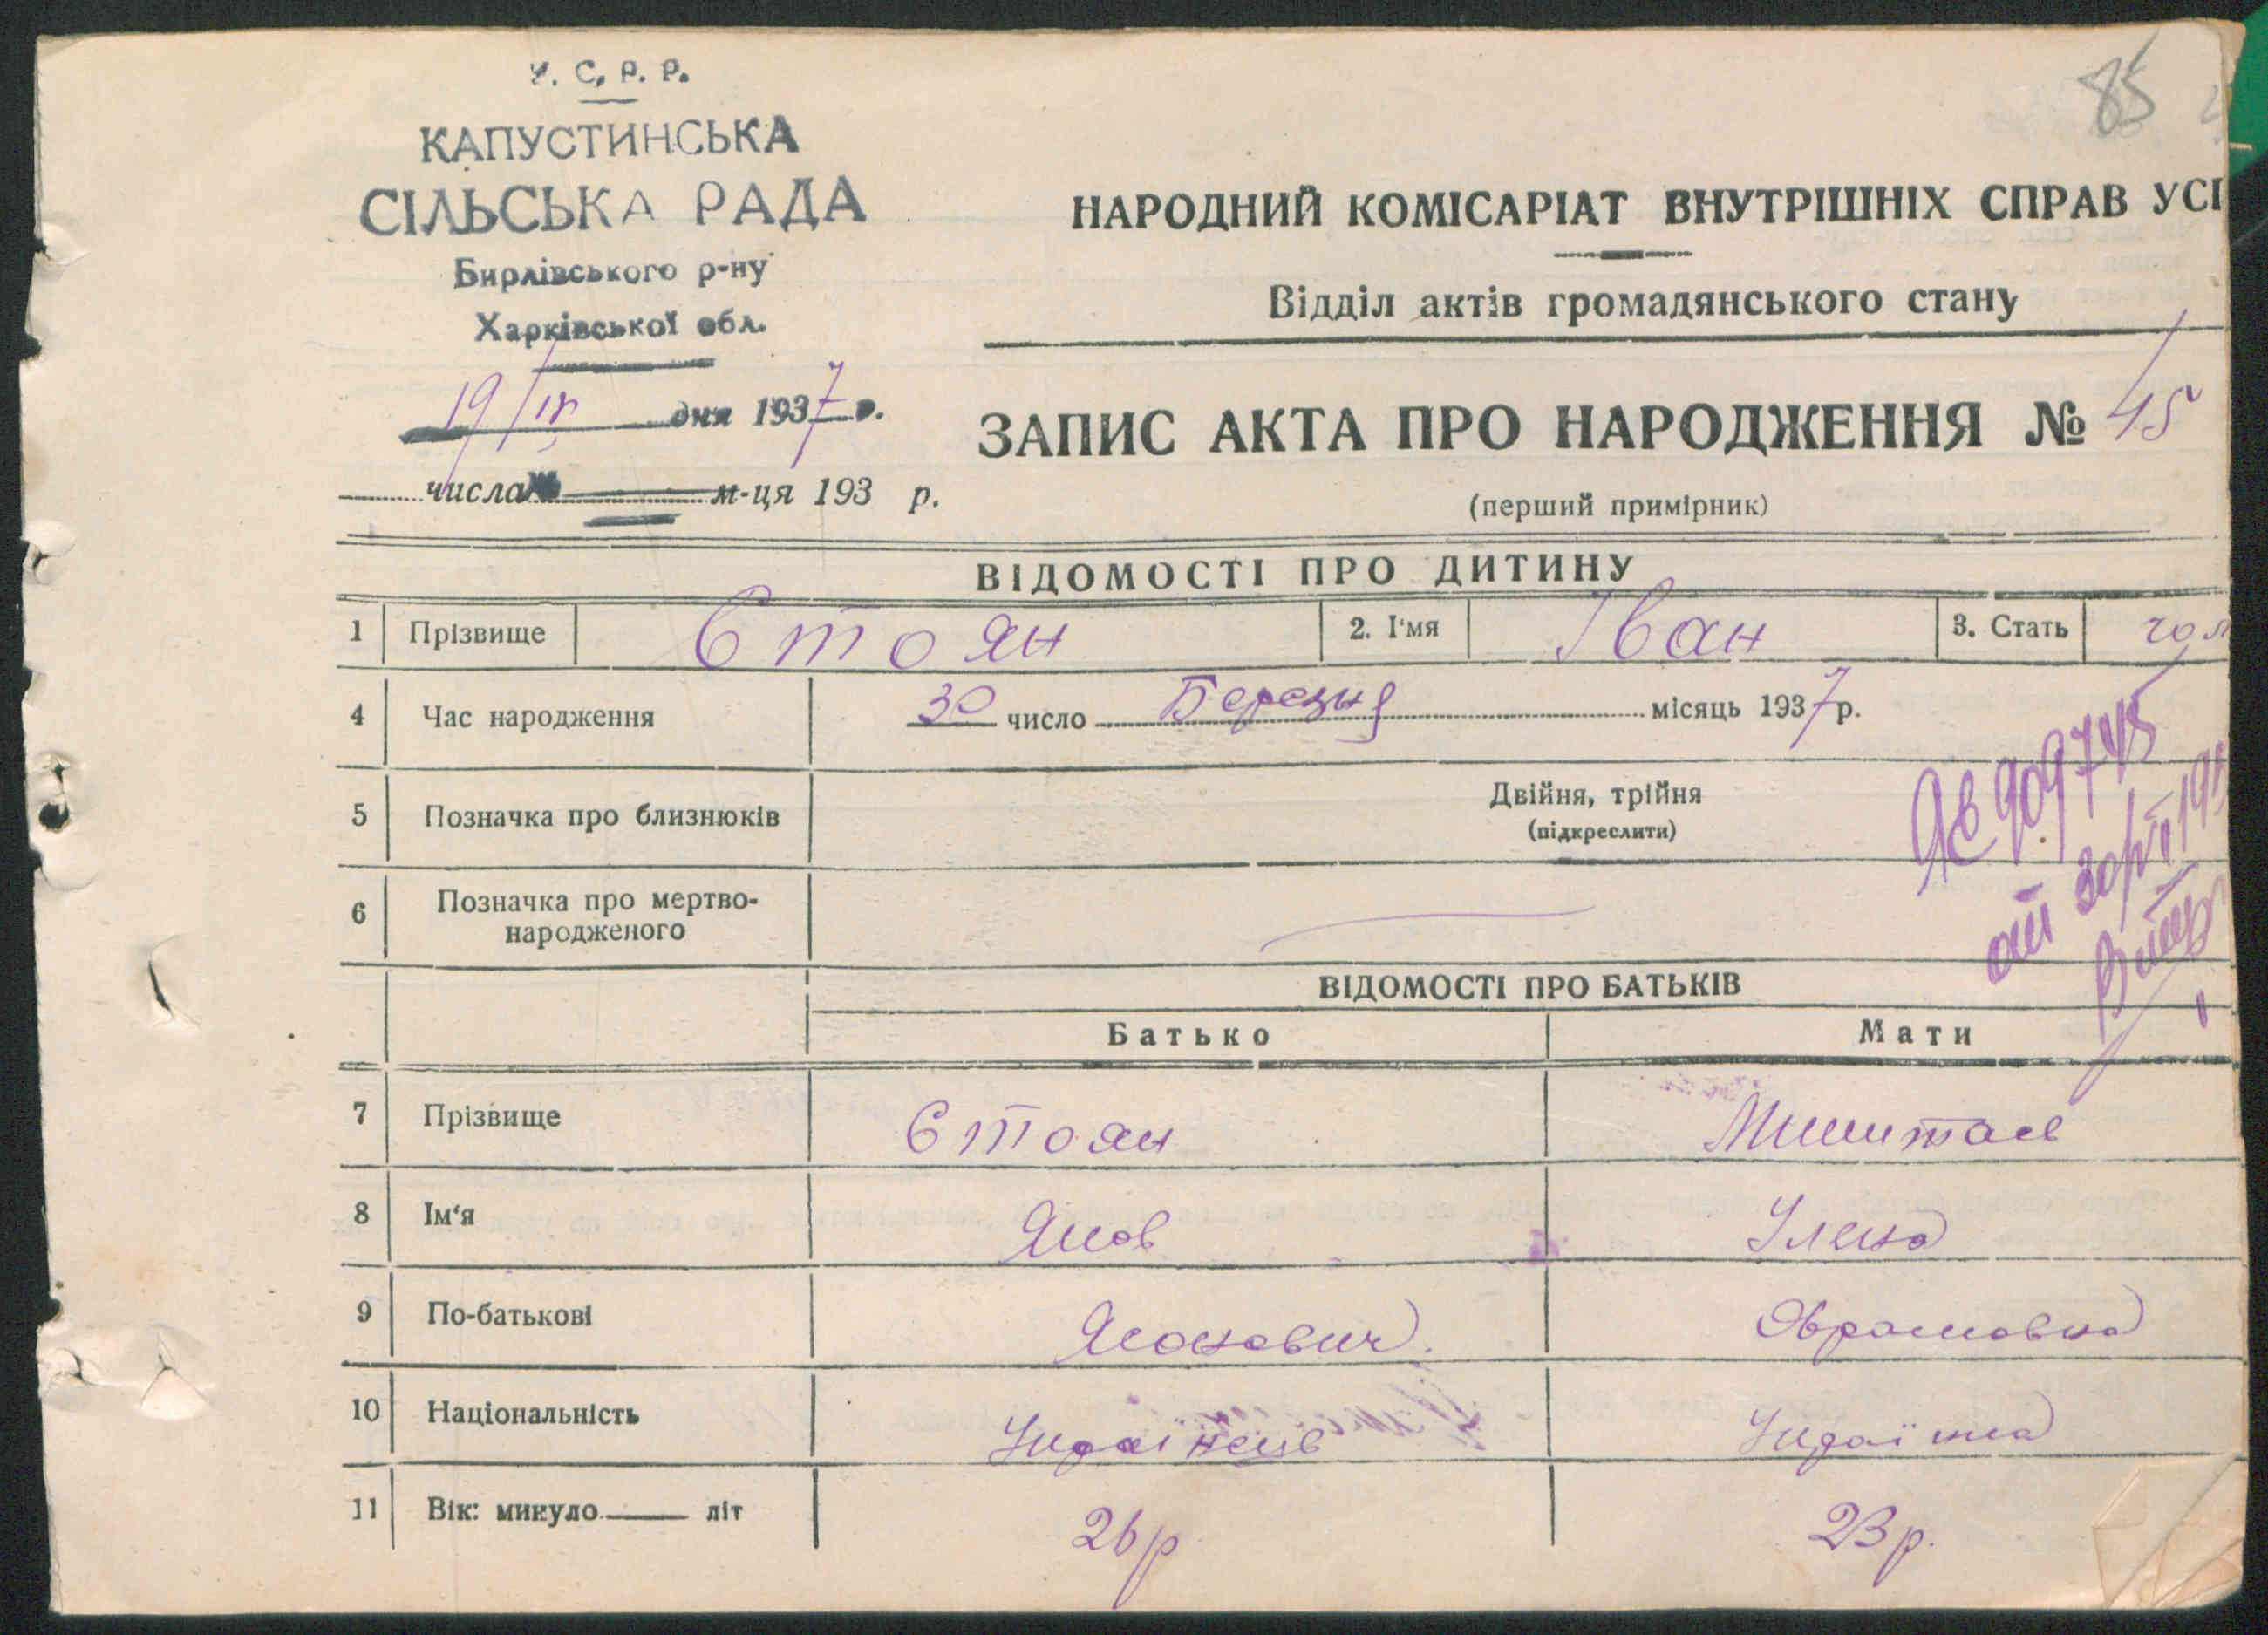 85
У. С. Р. Р.
КАПУСТИНСЬКА
СІЛЬСЬКА РАДА
Бирлівського р-ну
Харківської обл.
19/IV дня 1937 р.
числа м-ця 193 р.
НАРОДНИЙ КОМІСАРІАТ ВНУТРІШНІХ СПРАВ УСІ
Відділ актів громадянського стану
ЗАПИС АКТА ПРО НАРОДЖЕННЯ № 45
(перший примірник)
ВІДОМОСТІ ПРО ДИТИНУ
1 Прізвище Стоян 2. І'мя Іван 3. Стать чол
4 Час народження 30 число Березня місяць 1937 р.
5 Позначка про близнюків Двійня, трійня
(підкреслити)
ЯЄ 909745
6 Позначка про мертво-
народженого
ВІДОМОСТІ ПРО БАТЬКІВ
Батько Мати
7 Прізвище Стоян
8 Ім'я Яков Улена
9 По-батькові Оврамовна
10 Національність Украінець Украінка
11 Вік: минуло літ 26 р 23 р.